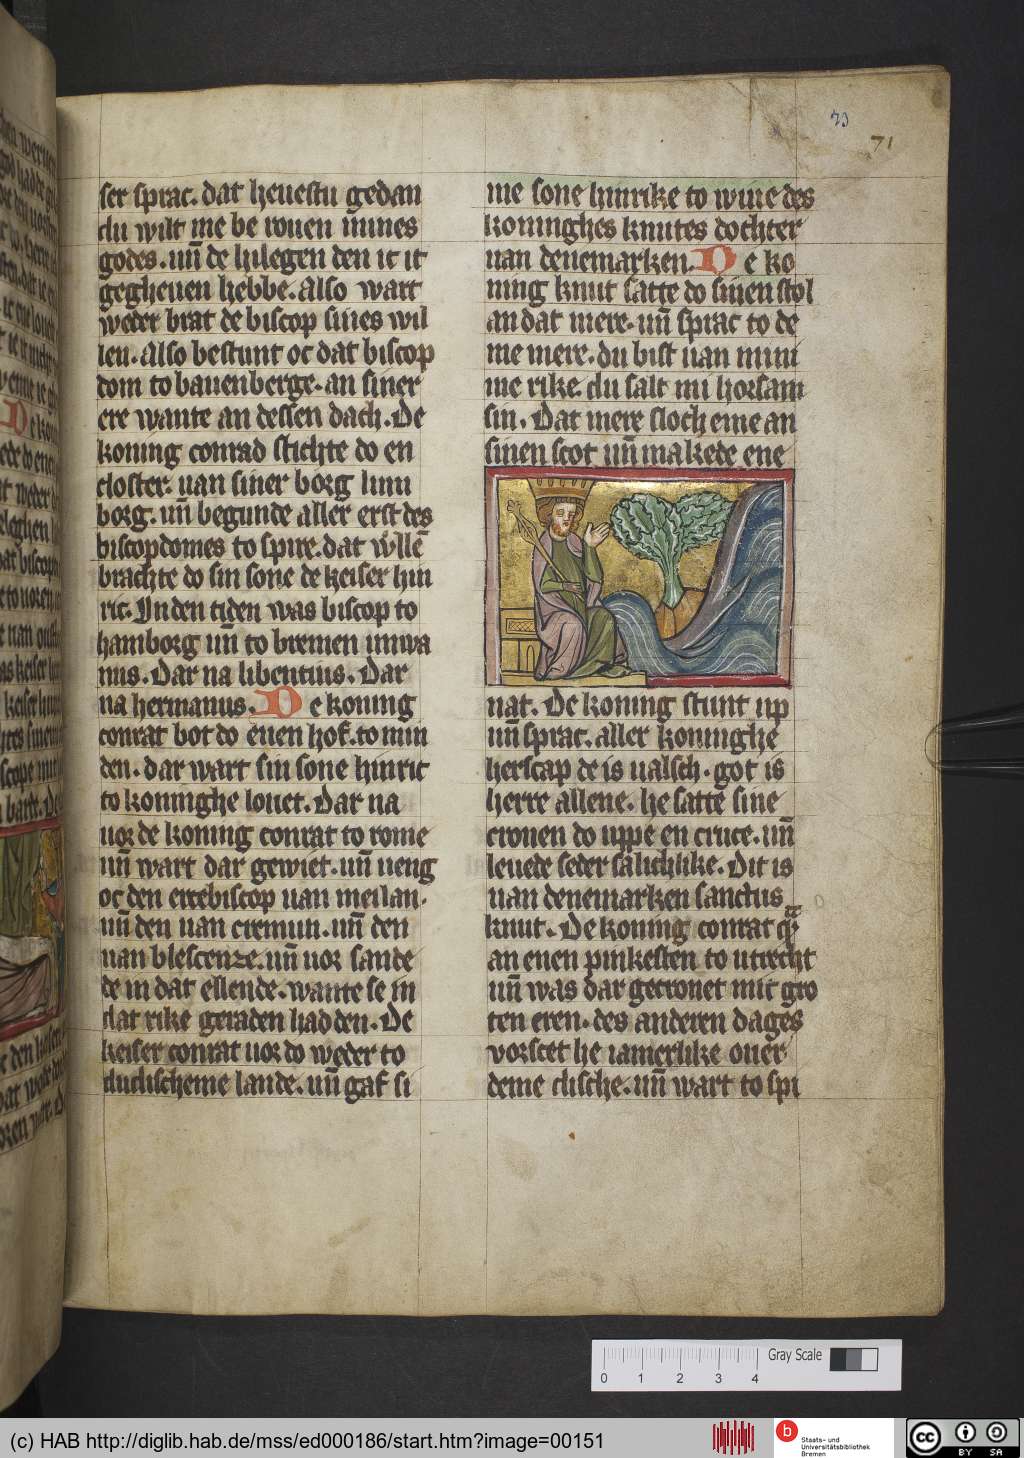 73
71
ser sprac. dat heuestu gedan
du wilt me be rouen mines
godes. un̄ de hilegen den ic it
gegheuen hebbe. Also wart
weder brat de biscop sines wil
len. Also bestunt oc dat biscop
dom to bauenberge. an siner
ere wante an dessen dach. De
koning conrad stichte do en
closter. uan siner borg linn
borg. un̄ begunde aller erst des
biscopdomes to spire. dat wllē
brachte do sin sone de keiser hin
ric. In den tiden was biscop to
hamborg un̄ to bremen unwa
nus. Dar na libentius. Dar
na hermanus. De koning
conrat bot do enen hof. to min
den. dar wart sin sone hinric
to koninghe louet. Dar na
uor de koning conrat to rome
un̄ wart dar gewiet. un̄ ueng
oc den ercebiscop uan meilan.
un̄ den uan cremun. un̄ den
uan blescenze. un̄ uor sande
de in dat ellende. wante se in
dat rike geraden hadden. De
keiser conrat uor do weder to
dudischeme lande. un̄ gaf si
me sone hinrike to wiue des
koninghes knutes dochter
uan denemarken. De ko
ning knut satte do sinen stol
an dat mere. un̄ sprac to de
me mere. du bist uan mini
me rike. du salt mi horsam
sin. Dat mere sloch eme an
sinen scot un̄ makede ene
nat. De koning stunt up
un̄ sprac. aller koninghe
herscap de is ualsch. got is
herre allene. he satte sine
cronen do uppe en cruce. un̄
leuede seder salichlike. Dit is
uan denemarken sanctus
knut. De koning conrat q̄
an enen pinkesten to utrecht
un̄ was dar gecronet mit gro
ten eren. des anderen dages
vorscet he iamerlike ouer
deme dische. un̄ wart to spi
Gray Scale
0 1 2 3 4
(c) HAB http://diglib.hab.de/mss/ed000186/start.htm?image=00151
b
Staats- und
Universitätsbibliothek
Bremen
cc
BY SA